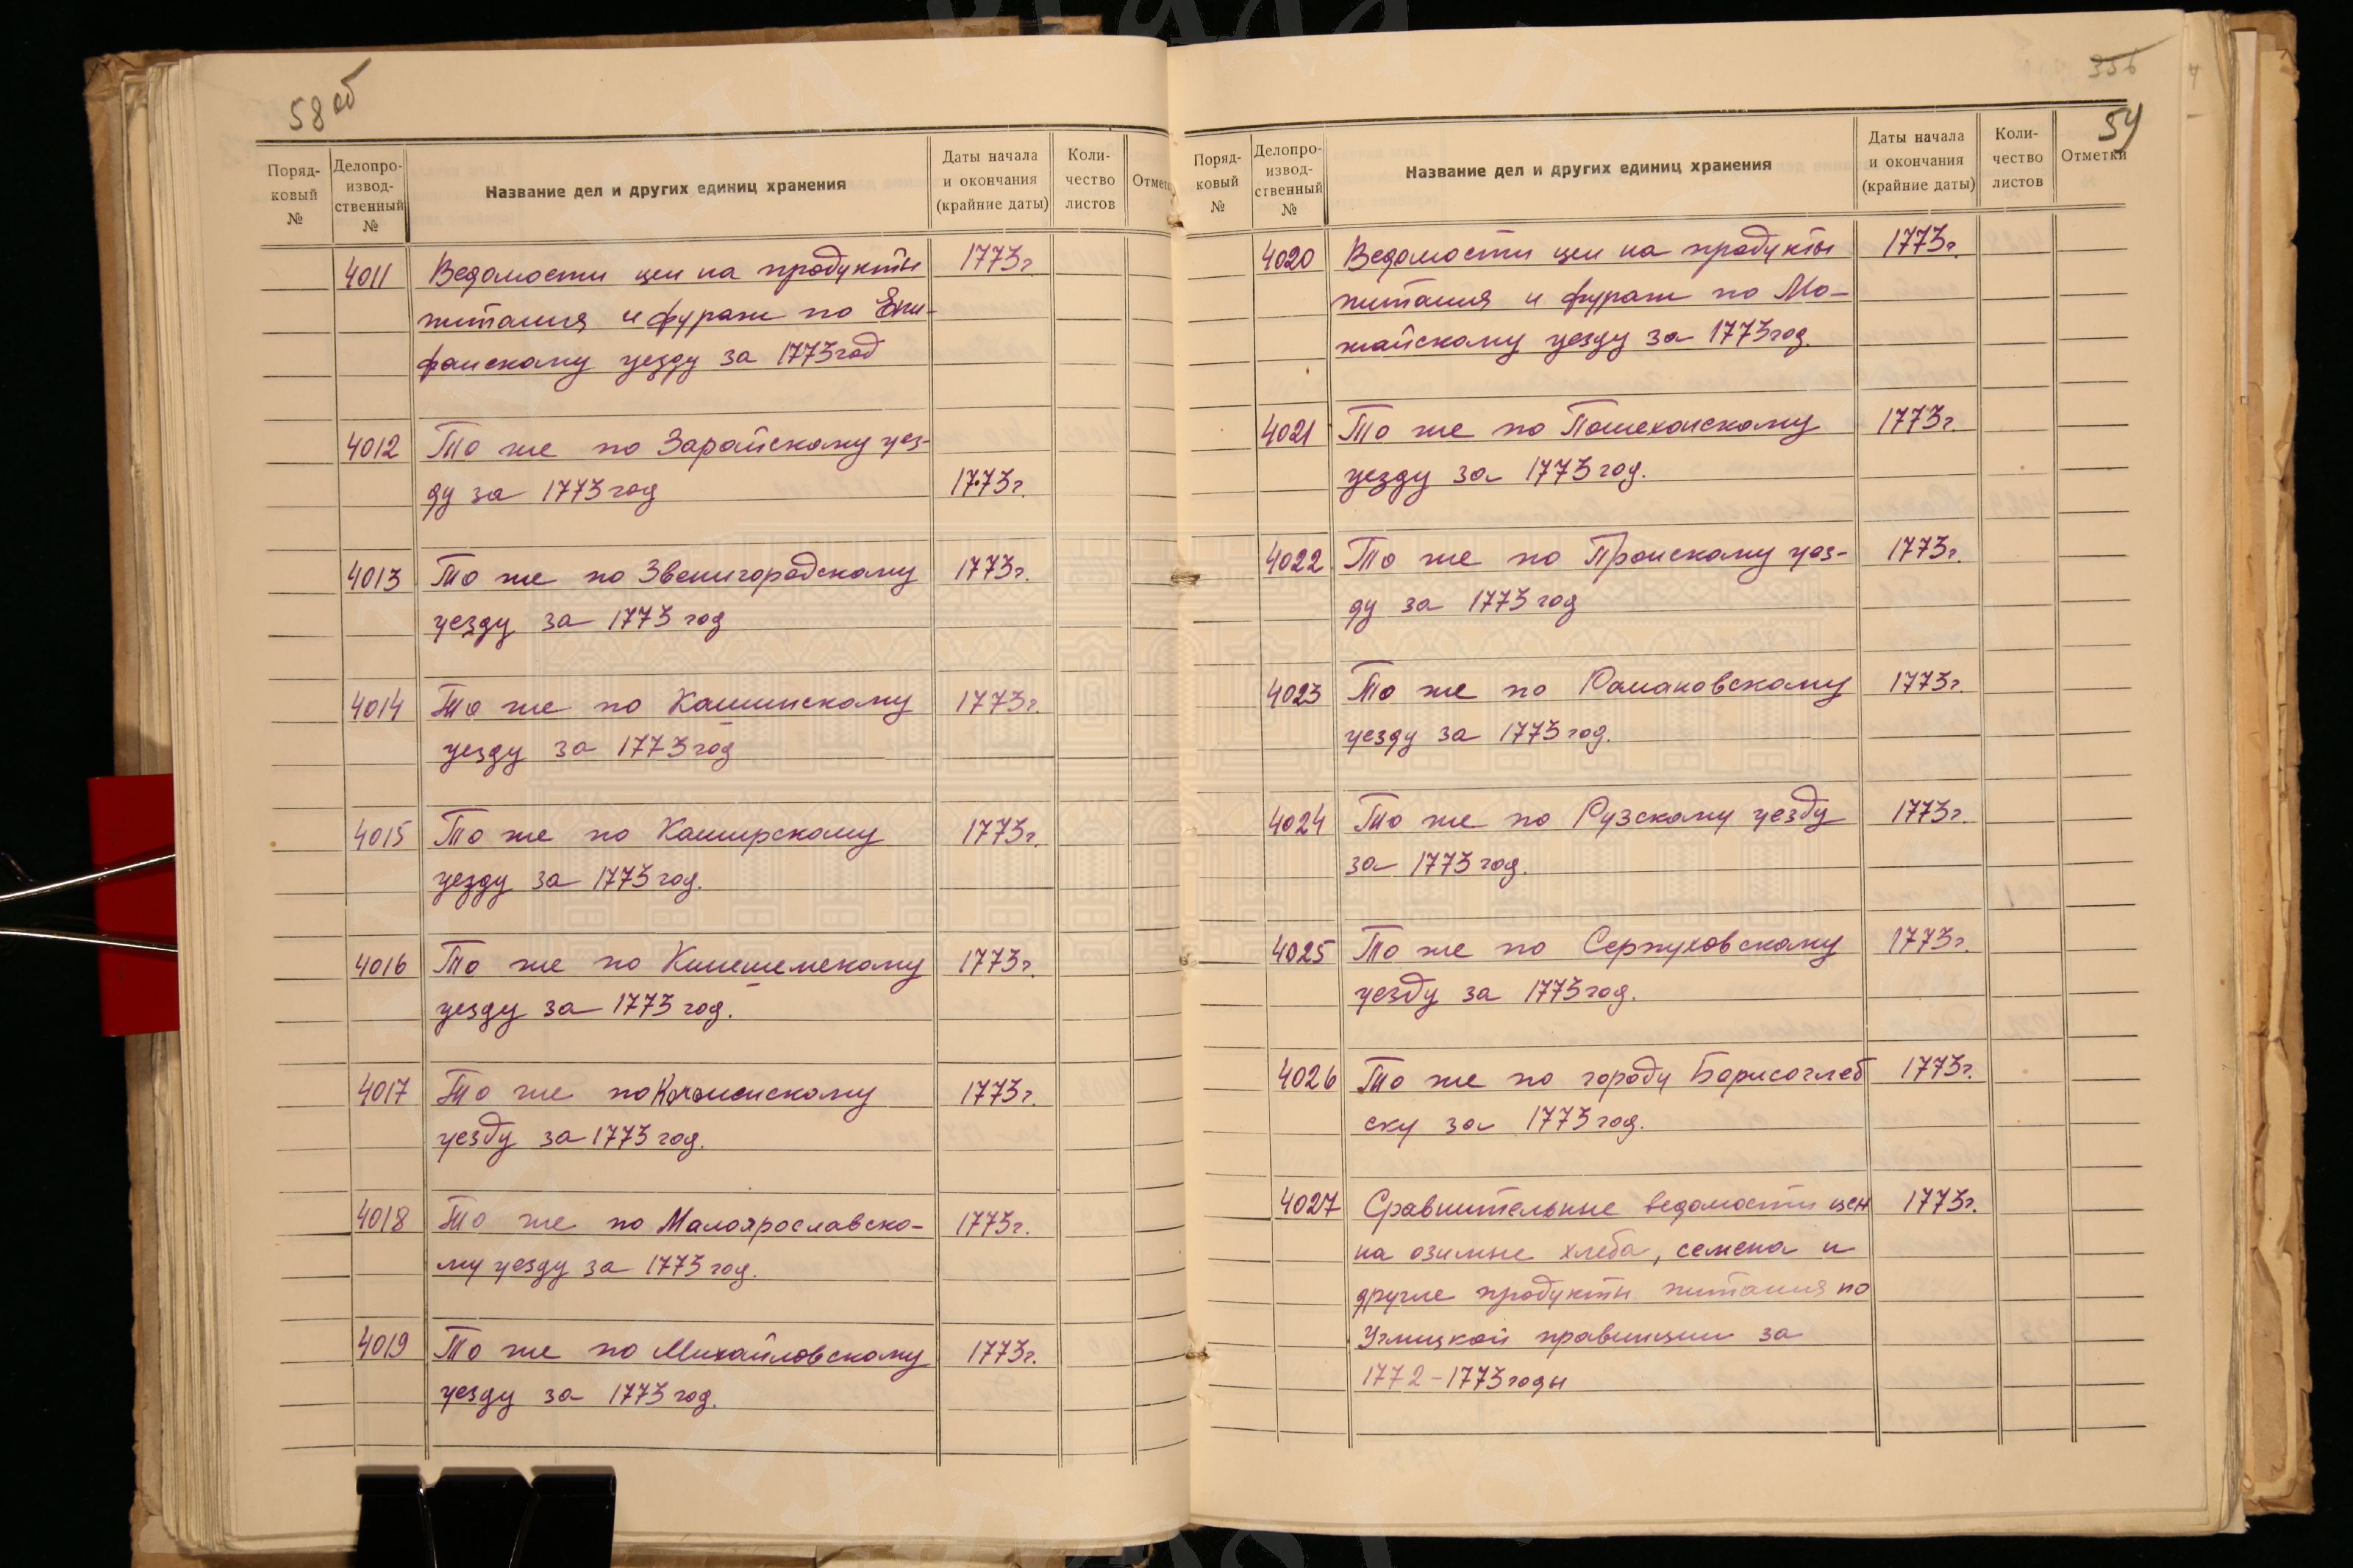 58 об
Поряд-
ковый
№
Делопро-
извод-
ственный
№
Название дел и других единиц хранения
Даты начала
и окончания
(крайние даты)
Коли-
чество
листов
Отмет
4011 Ведомости цен на продукты 1773г.
питания и фураж по Епи-
фанскому уезду за 1773 год
4012 То же по Зарайскому уез-
ду за 1773 год 1773г.
4013 То же по Звенигородскому 1773г.
уезду за 1773 год
4014 То же по Кашинскому 1773г.
уезду за 1773 год
4015 То же по Каширскому 1773г.
уезду за 1773 год.
4016 То же по Кинешемскому 1773г.
уезду за 1773 год.
4017 То же по Коломенскому 1773г.
уезду за 1773 год.
4018 То же по Малоярославско- 1773г.
му уезду за 1773 год.
4019 То же по Михайловскому 1773г.
уезду за 1773 год.
356
59
Поряд-
ковый
№
Делопро-
извод-
ственный
№
Название дел и других единиц хранения
Даты начала
и окончания
(крайние даты)
Коли-
чество
листов
Отметки
4020 Ведомости цен на продукты 1773г.
питания и фураж по Мо-
жайскому уезду за 1773 год.
4021 То же по Пошехонскому 1773г.
уезду за 1773 год.
4022 То же по Пронскому уез- 1773г.
ду за 1773 год
4023 То же по Романовскому 1773г.
уезду за 1773 год.
4024 То же по Рузскому уезду 1773г.
за 1773 год.
4025 То же по Серпуховскому 1773г.
уезду за 1773 год.
4026 То же по городу Борисоглеб 1773г.
ску за 1773 год.
4027 Сравнительные ведомости цен 1773г.
на озимые хлеба, семена и
другие продукты питания по
Углицкой провинции за
1772-1773 годы